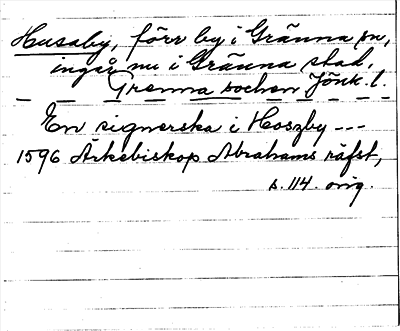 Husaby, förr by i Gränna sn,
ingår nu i Gränna stad.
Grenna socken Jönk. l.
En signerska i Hoszby ---
1596 Ärkebiskop Abrahams räfst,
s. 114. orig.